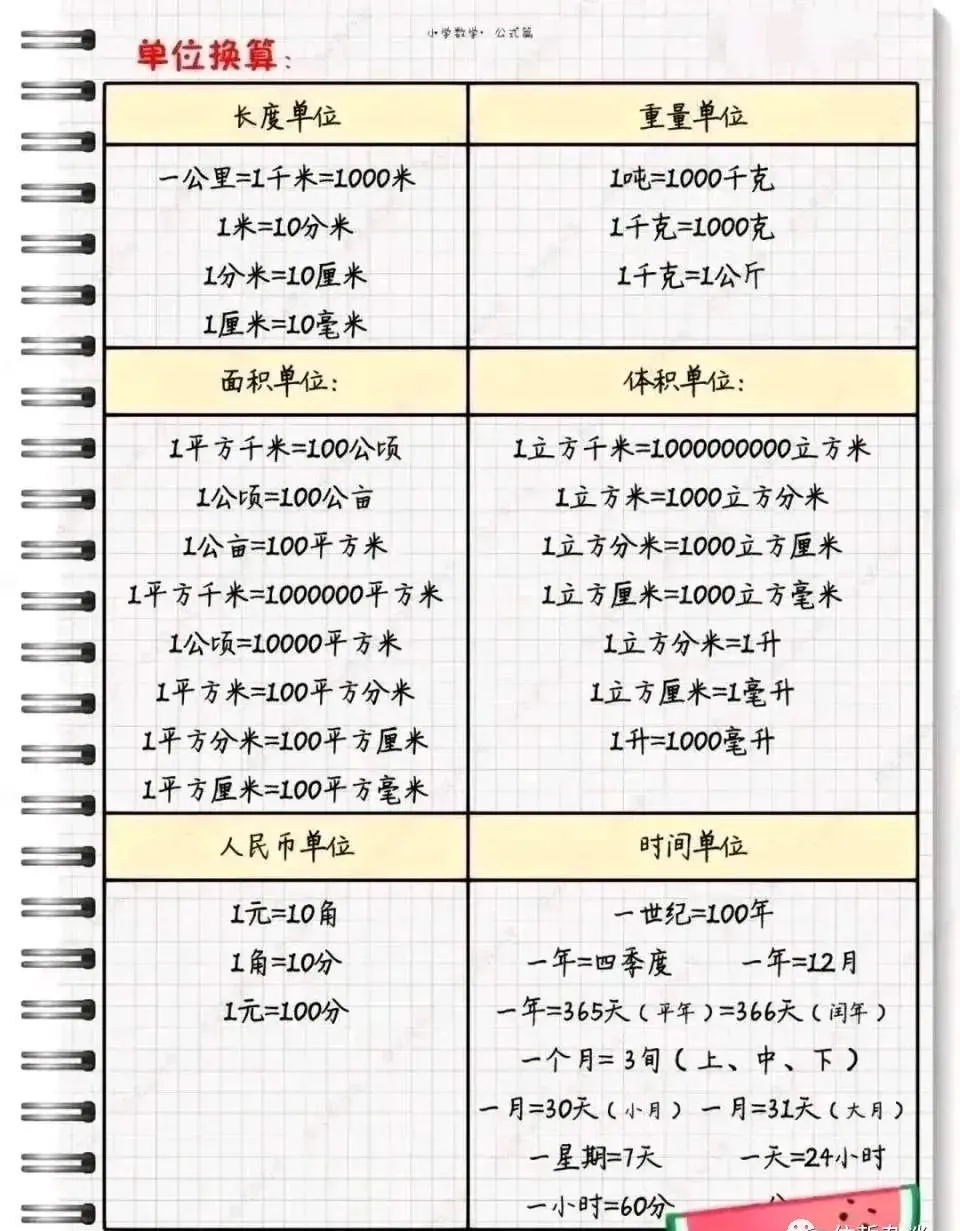 小学数学·公式篇
单位换算：
长度单位
一公里=1千米=1000米
1米=10分米
1分米=10厘米
1厘米=10毫米
重量单位
1吨=1000千克
1千克=1000克
1千克=1公斤
面积单位：
1平方千米=100公顷
1公顷=100公亩
1公亩=100平方米
1平方千米=1000000平方米
1公顷=10000平方米
1平方米=100平方分米
1平方分米=100平方厘米
1平方厘米=100平方毫米
体积单位：
1立方千米=1000000000立方米
1立方米=1000立方分米
1立方分米=1000立方厘米
1立方厘米=1000立方毫米
1立方分米=1升
1立方厘米=1毫升
1升=1000毫升
人民币单位
1元=10角
1角=10分
1元=100分
时间单位
一世纪=100年
一年=四季度 一年=12月
一年=365天（平年）=366天（闰年）
一个月= 3旬（上、中、下）
一月=30天（小月） 一月=31天（大月）
一星期=7天 一天=24小时
一小时=60分